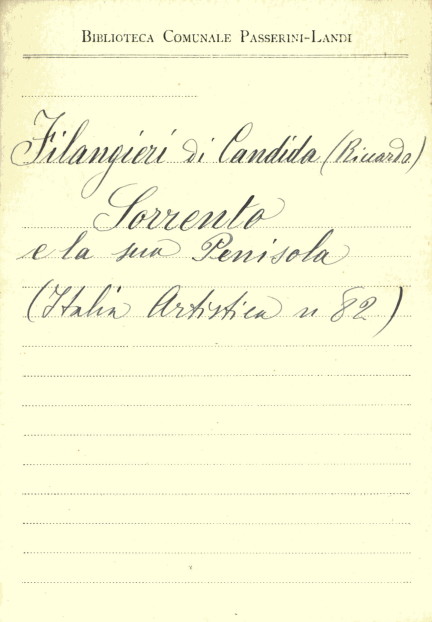 BIBLIOTECA COMUNALE PASSERINI-LANDI
Filangieri di Candida (Riccardo)
Sorrento
e la sua Penisola
(Italia Artistica n 82)